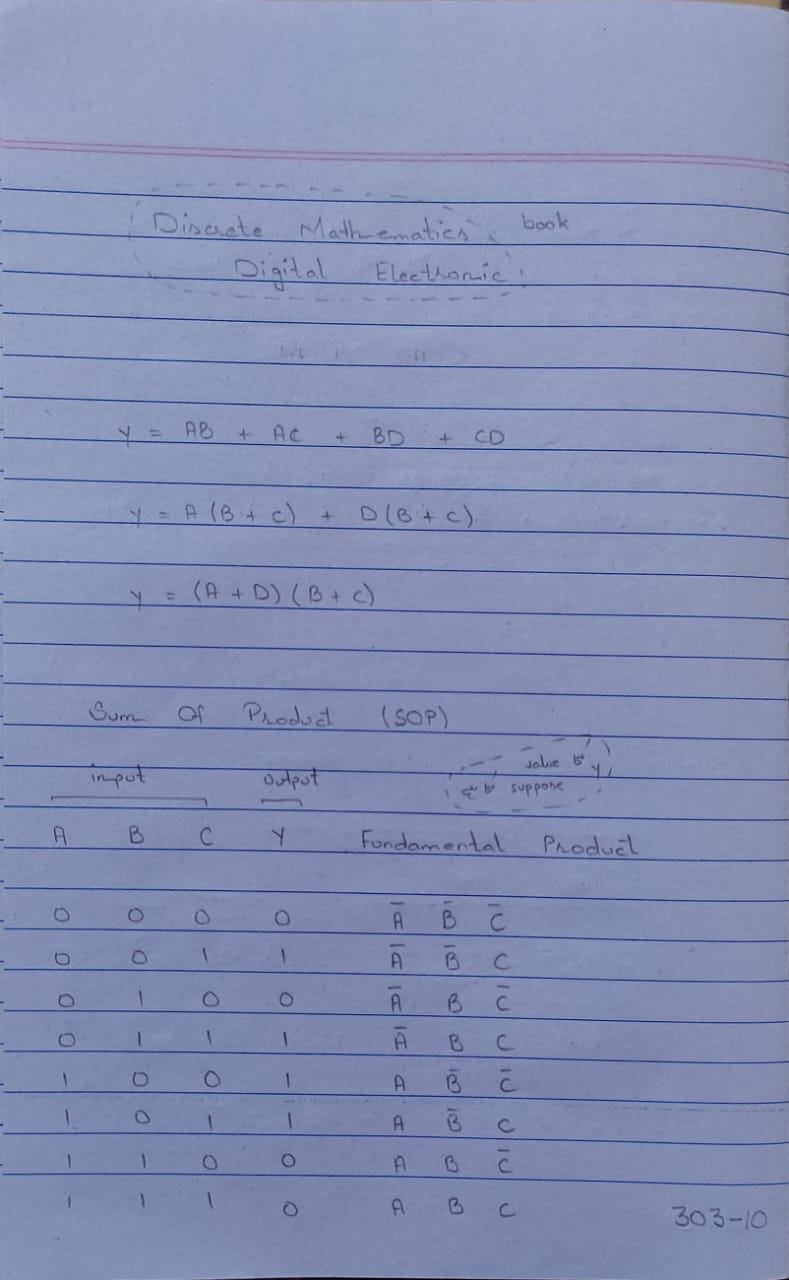 Discrete Mathematics book
Digital Electronic
y = AB + AC + BD + CD
y = A (B + C) + D (B + C)
y = (A + D) (B + C)
Sum Of Product (SOP)
input output value y
suppose
A B C Y Fundamental Product
0 0 0 0 A̅ B̅ C̅
0 0 1 1 A̅ B̅ C
0 1 0 0 A̅ B C̅
0 1 1 1 A̅ B C
1 0 0 1 A B̅ C̅
1 0 1 1 A B̅ C
1 1 0 0 A B C̅
1 1 1 0 A B C
303-10